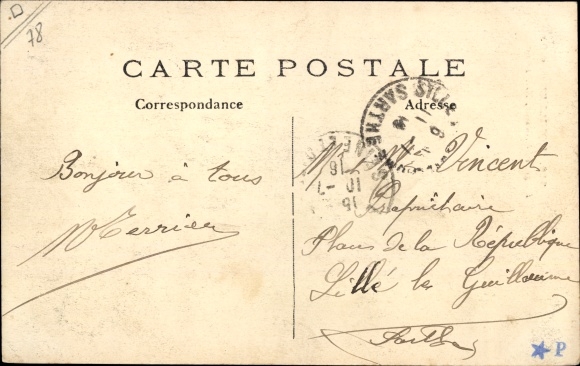 78
CARTE POSTALE
Correspondance
Adresse
Bonjour à tous
M Terrier
M. Vincent
Place de la République
Sillé le Guillaume
Sarthe
SARTHE
P